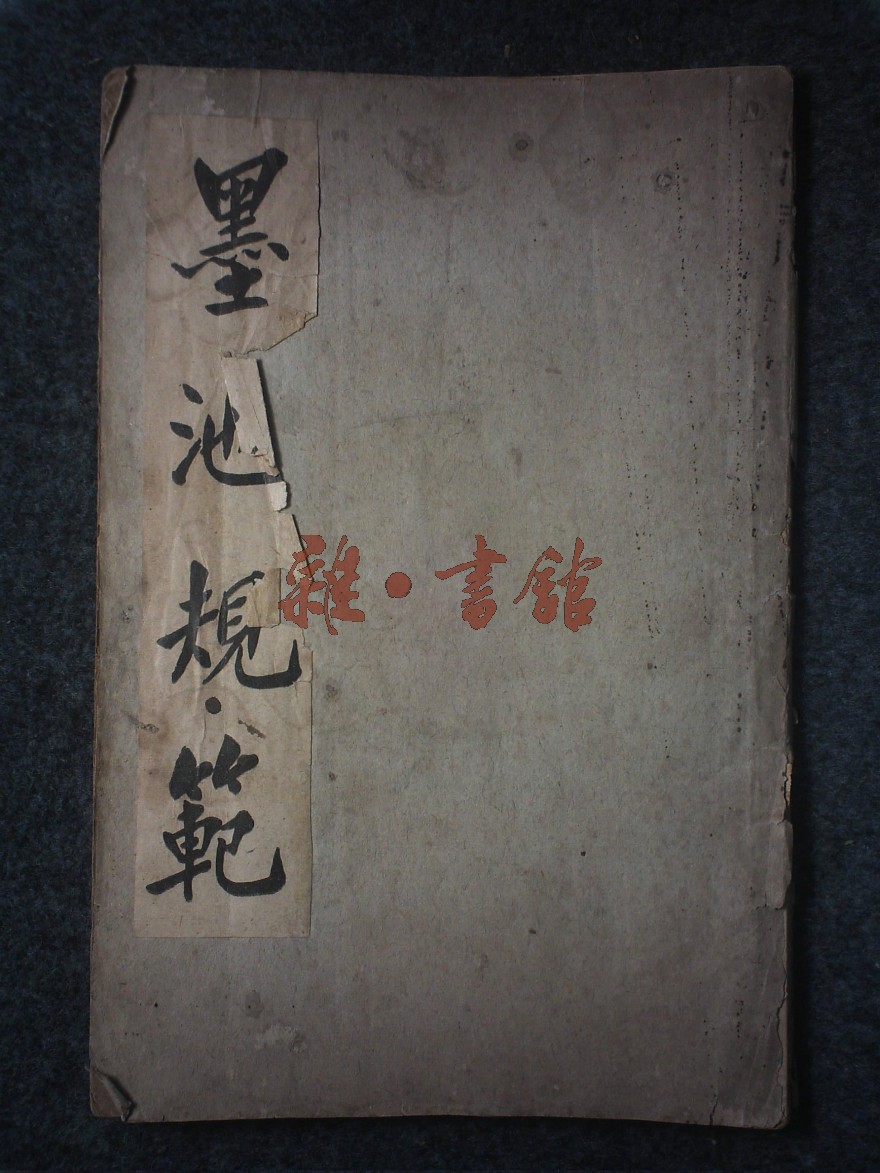 墨池規範
雜·書館